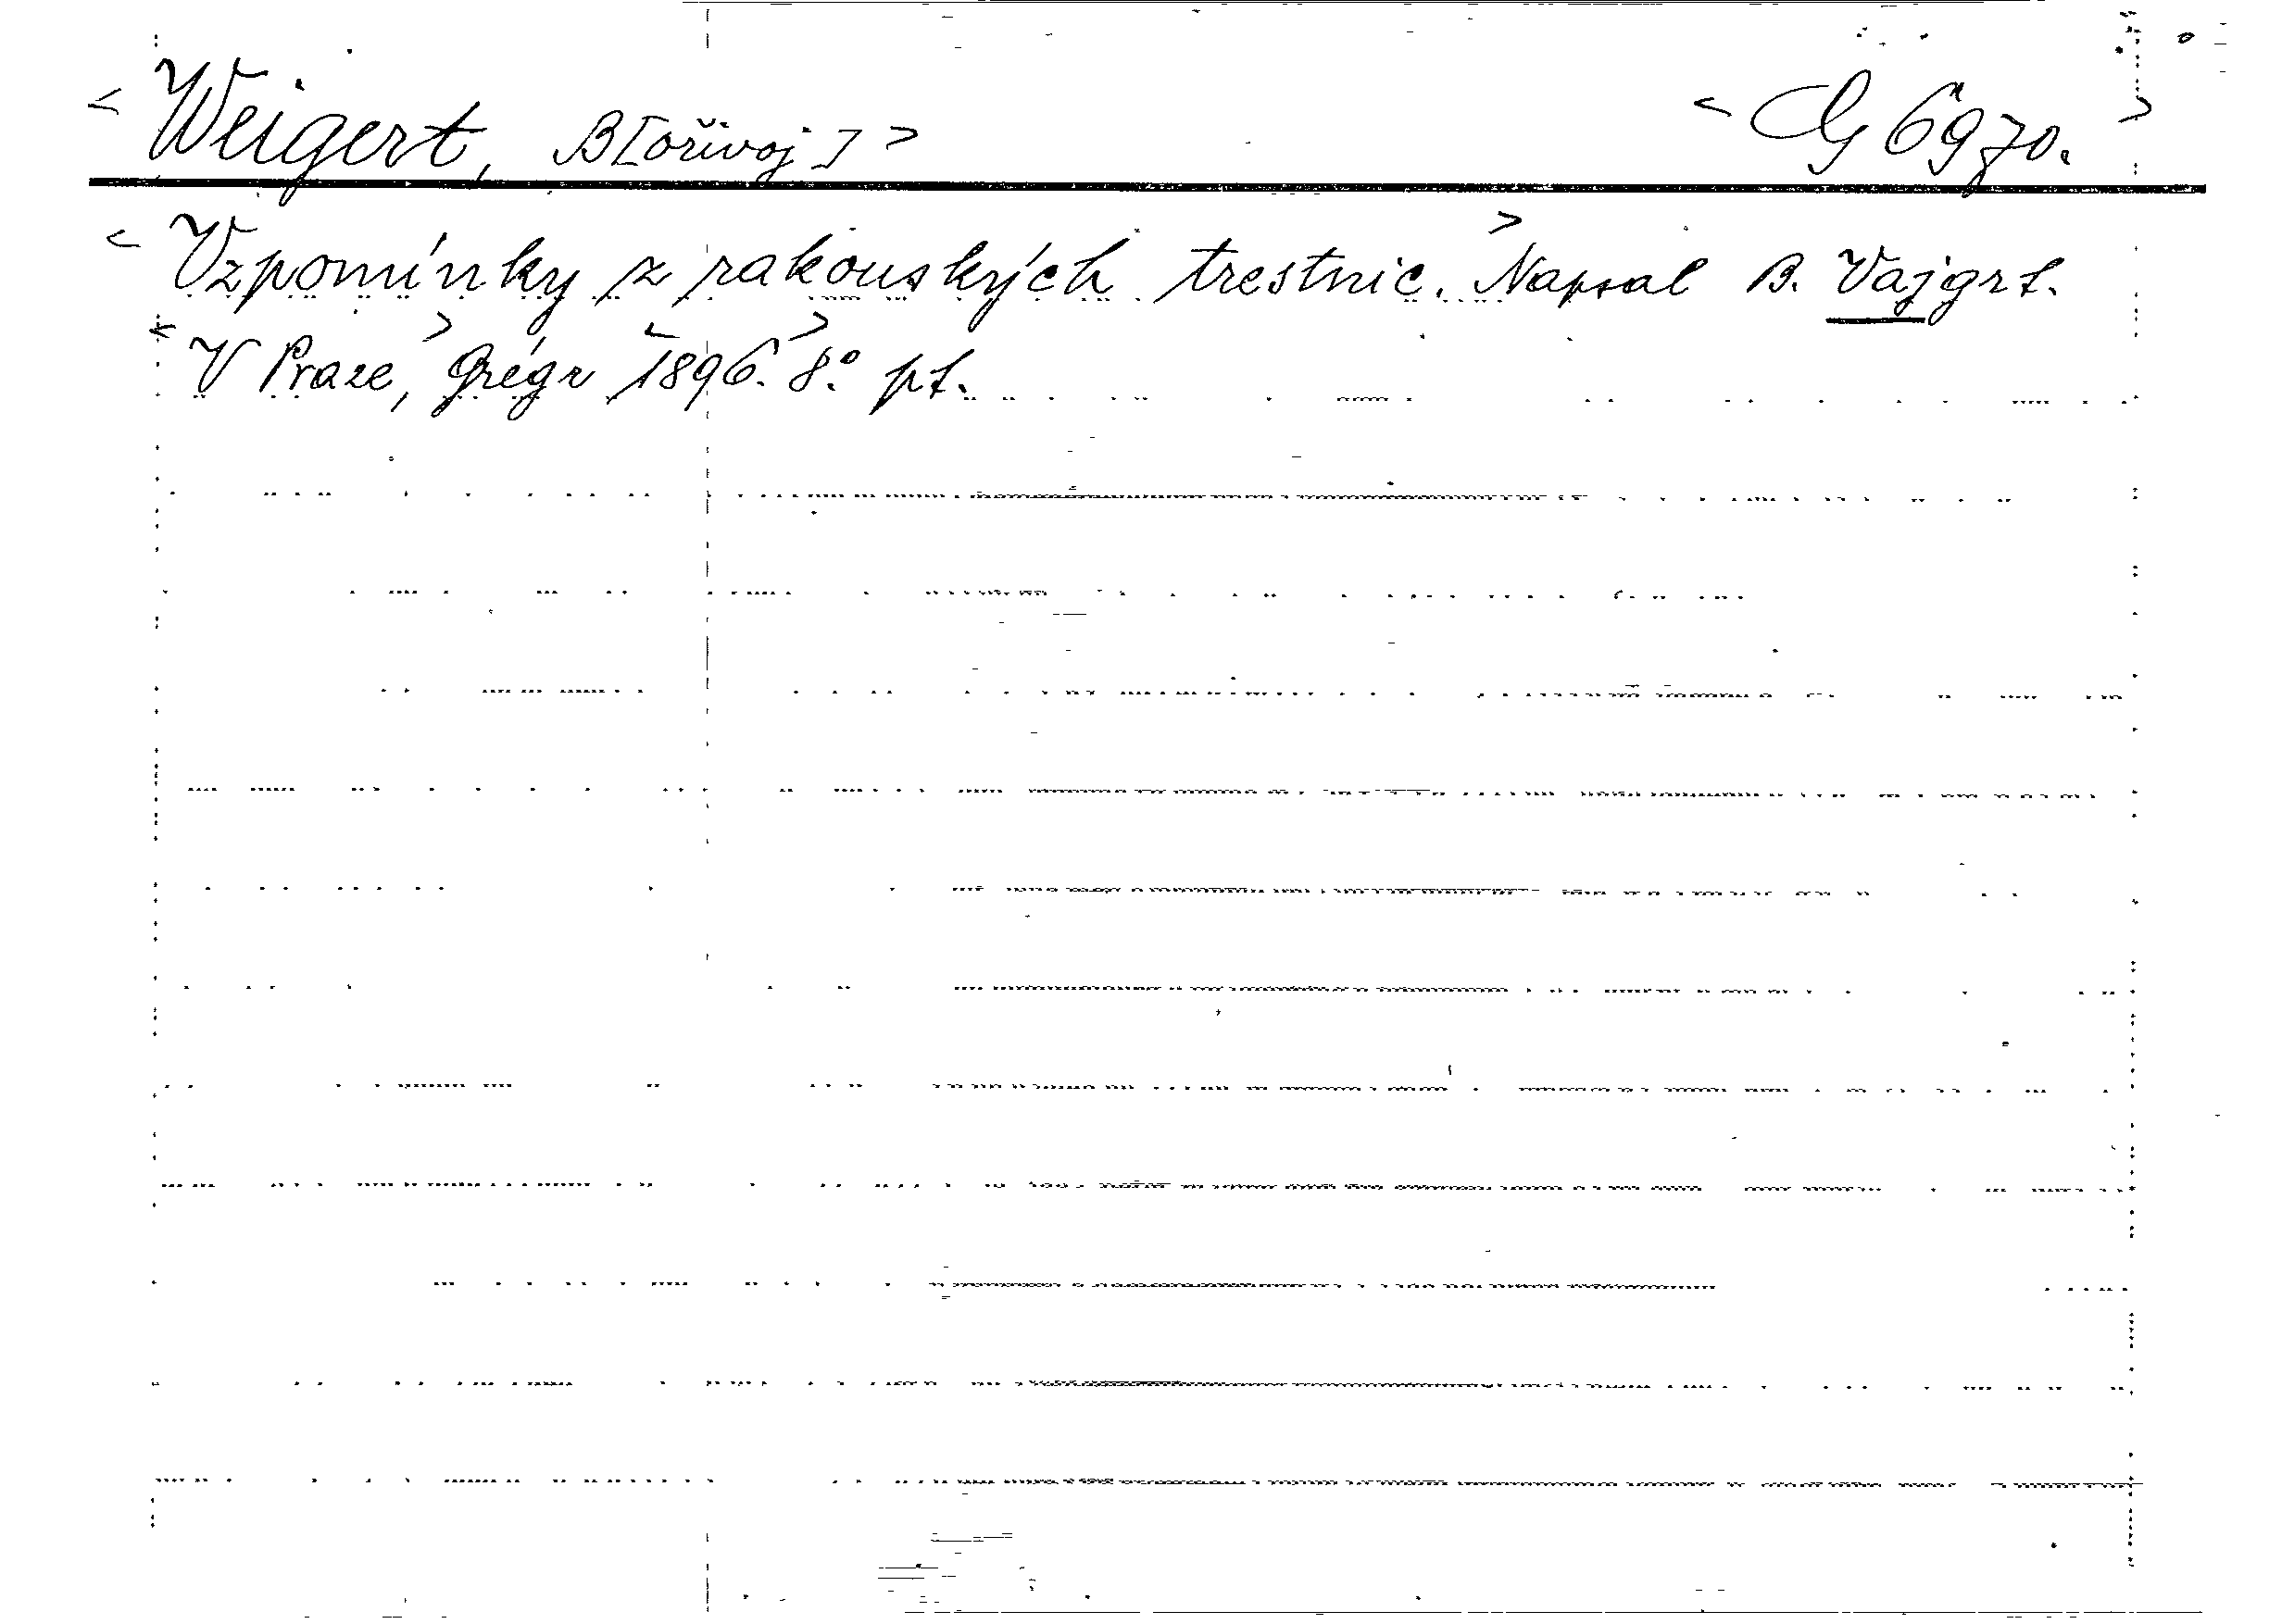 < Weigert, B[ořivoj] > < G 6970. >
< Vzpomínky z rakouských trestnic. > Napsal B. Vajgrt.
< V Praze, > Grégr < 1896. > 8.° pt.